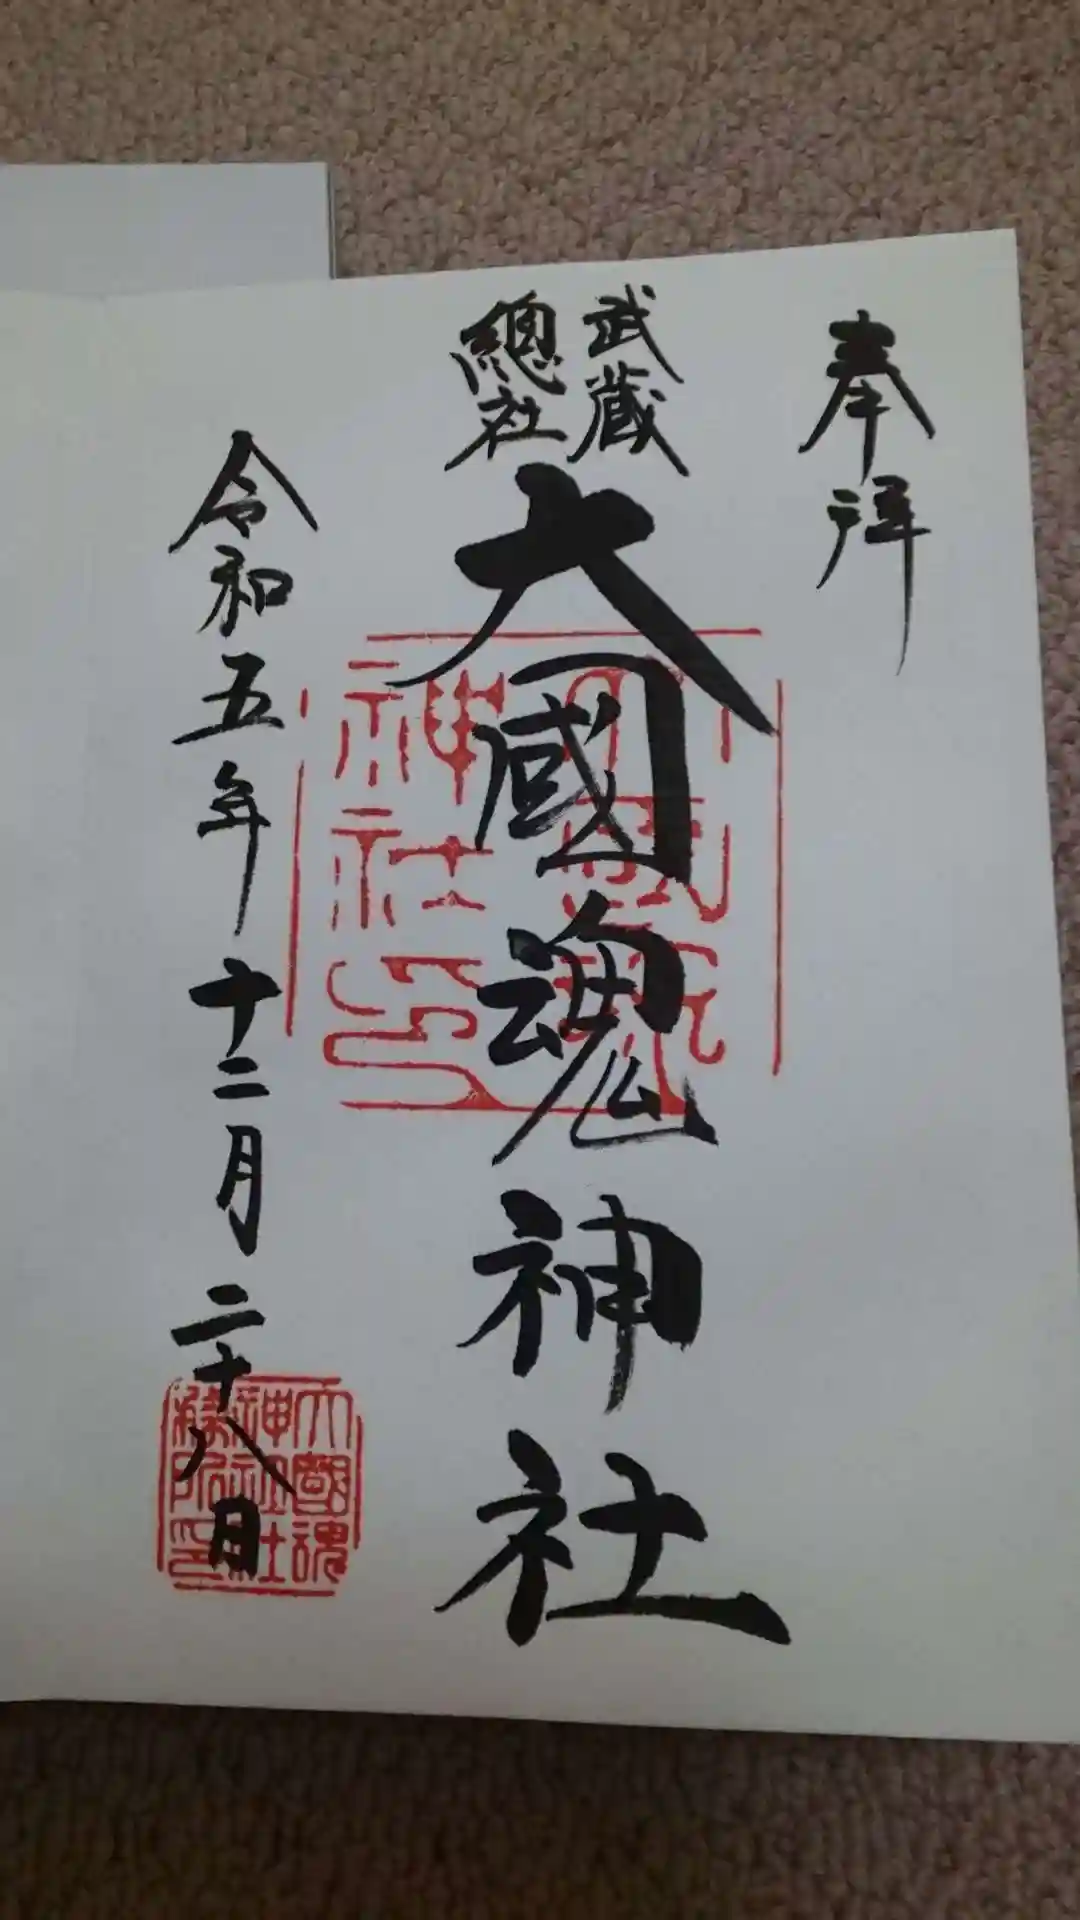 奉拝
武蔵
總社
大國魂神社
令和五年十二月二十八日
大國魂
神社
務所印